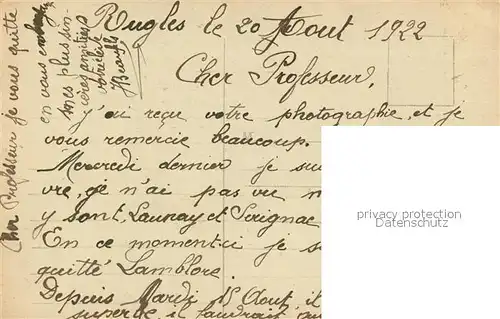 Rugles le 20 Aout 1922
Cher Professeur,
j'ai reçu votre photographie, et je
vous remercie beaucoup.
Mercredi dernier je su
vre, je n'ai pas vu
y sont, Launay et Serignac
En ce moment-ci je s
quitté Lamblore.
Depuis Mardi 15 Aout, it
superbe, il faudrait
Cher Professeur je vous quitte
en vous
mes plus sin-
cères amitiés
privacy protection
Datenschutz